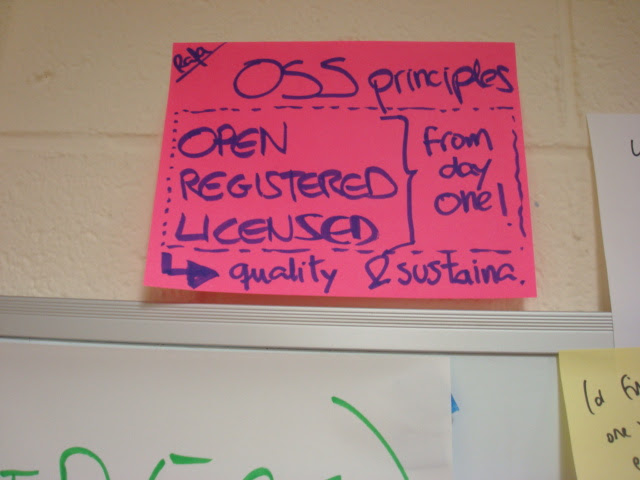 Rafa
OSS principles
OPEN
REGISTERED
LICENSED
from
day
one!
quality & sustaina.
(d fi
one